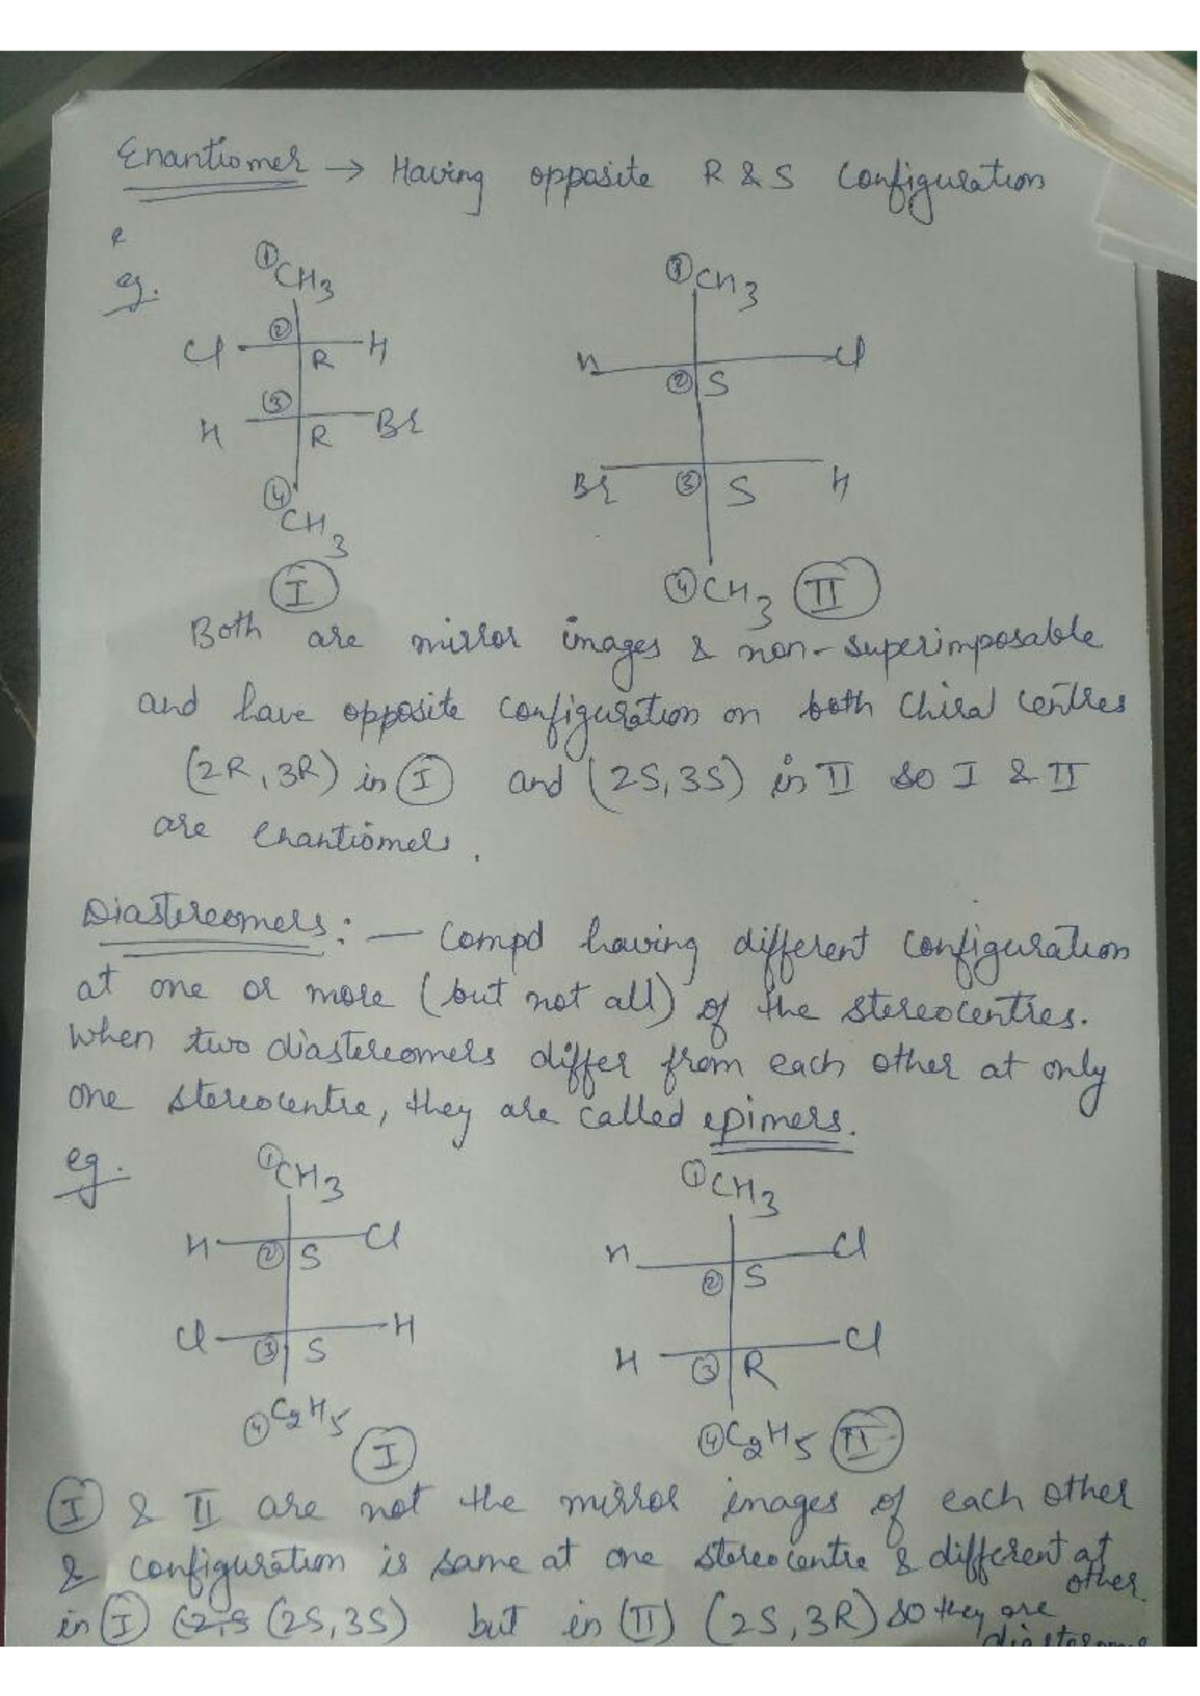 Enantiomer → Having opposite R & S configuration
eg.
① CH3
Cl ② H
R
③
H Br
R
④ CH3
I
① CH3
H Cl
② S
Br ③ S H
④ CH3 II
Both are mirror images & non-superimposable
and have opposite configuration on both chiral centres
(2R, 3R) in I and (2S, 3S) in II so I & II
are enantiomers.
Diastereomers: — Compd having different configuration
at one or more (but not all) of the stereocentres.
When two diastereomers differ from each other at only
one stereocentre, they are called epimers.
eg.
① CH3
H Cl
② S
Cl H
③ S
④ C2H5
I
① CH3
H Cl
② S
H Cl
③ R
④ C2H5 II
I & II are not the mirror images of each other
& configuration is same at one stereocentre & different at
other.
in I (2S, 3S) but in (II) (2S, 3R) so they are